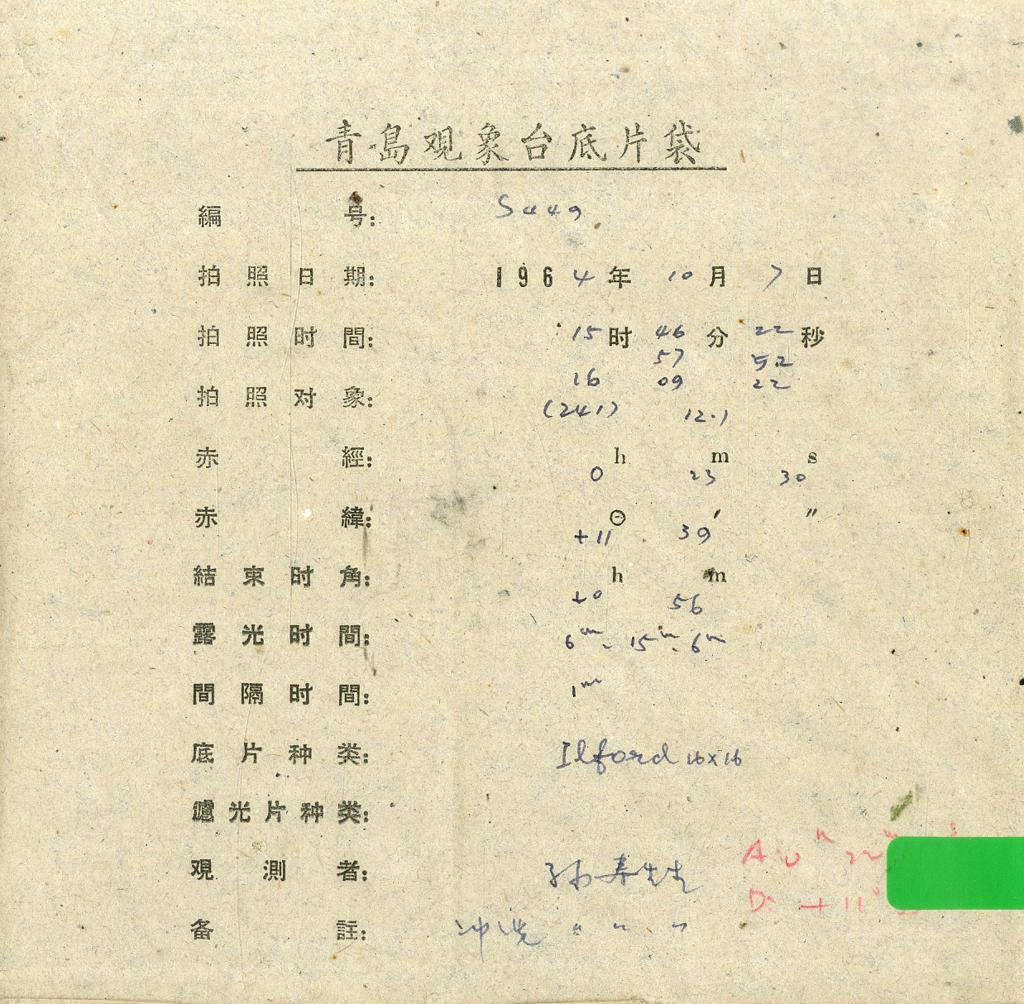 青島观象台底片袋
編号: S449
拍照日期: 1964年10月7日
拍照时間: 15时46分22秒
57 52
16 09 22
拍照对象: (241) 12.1
赤經: 0h 23m 30s
赤緯: +11° 39′ ″
結束时角: +0h 56m
露光时間: 6m - 15m - 6m
間隔时間: 1m
底片种类: Ilford 16×16
濾光片种类:
观測者: 孙寿
A. 0h 22m s
D. +11°
备註: 冲洗 〃 〃 〃